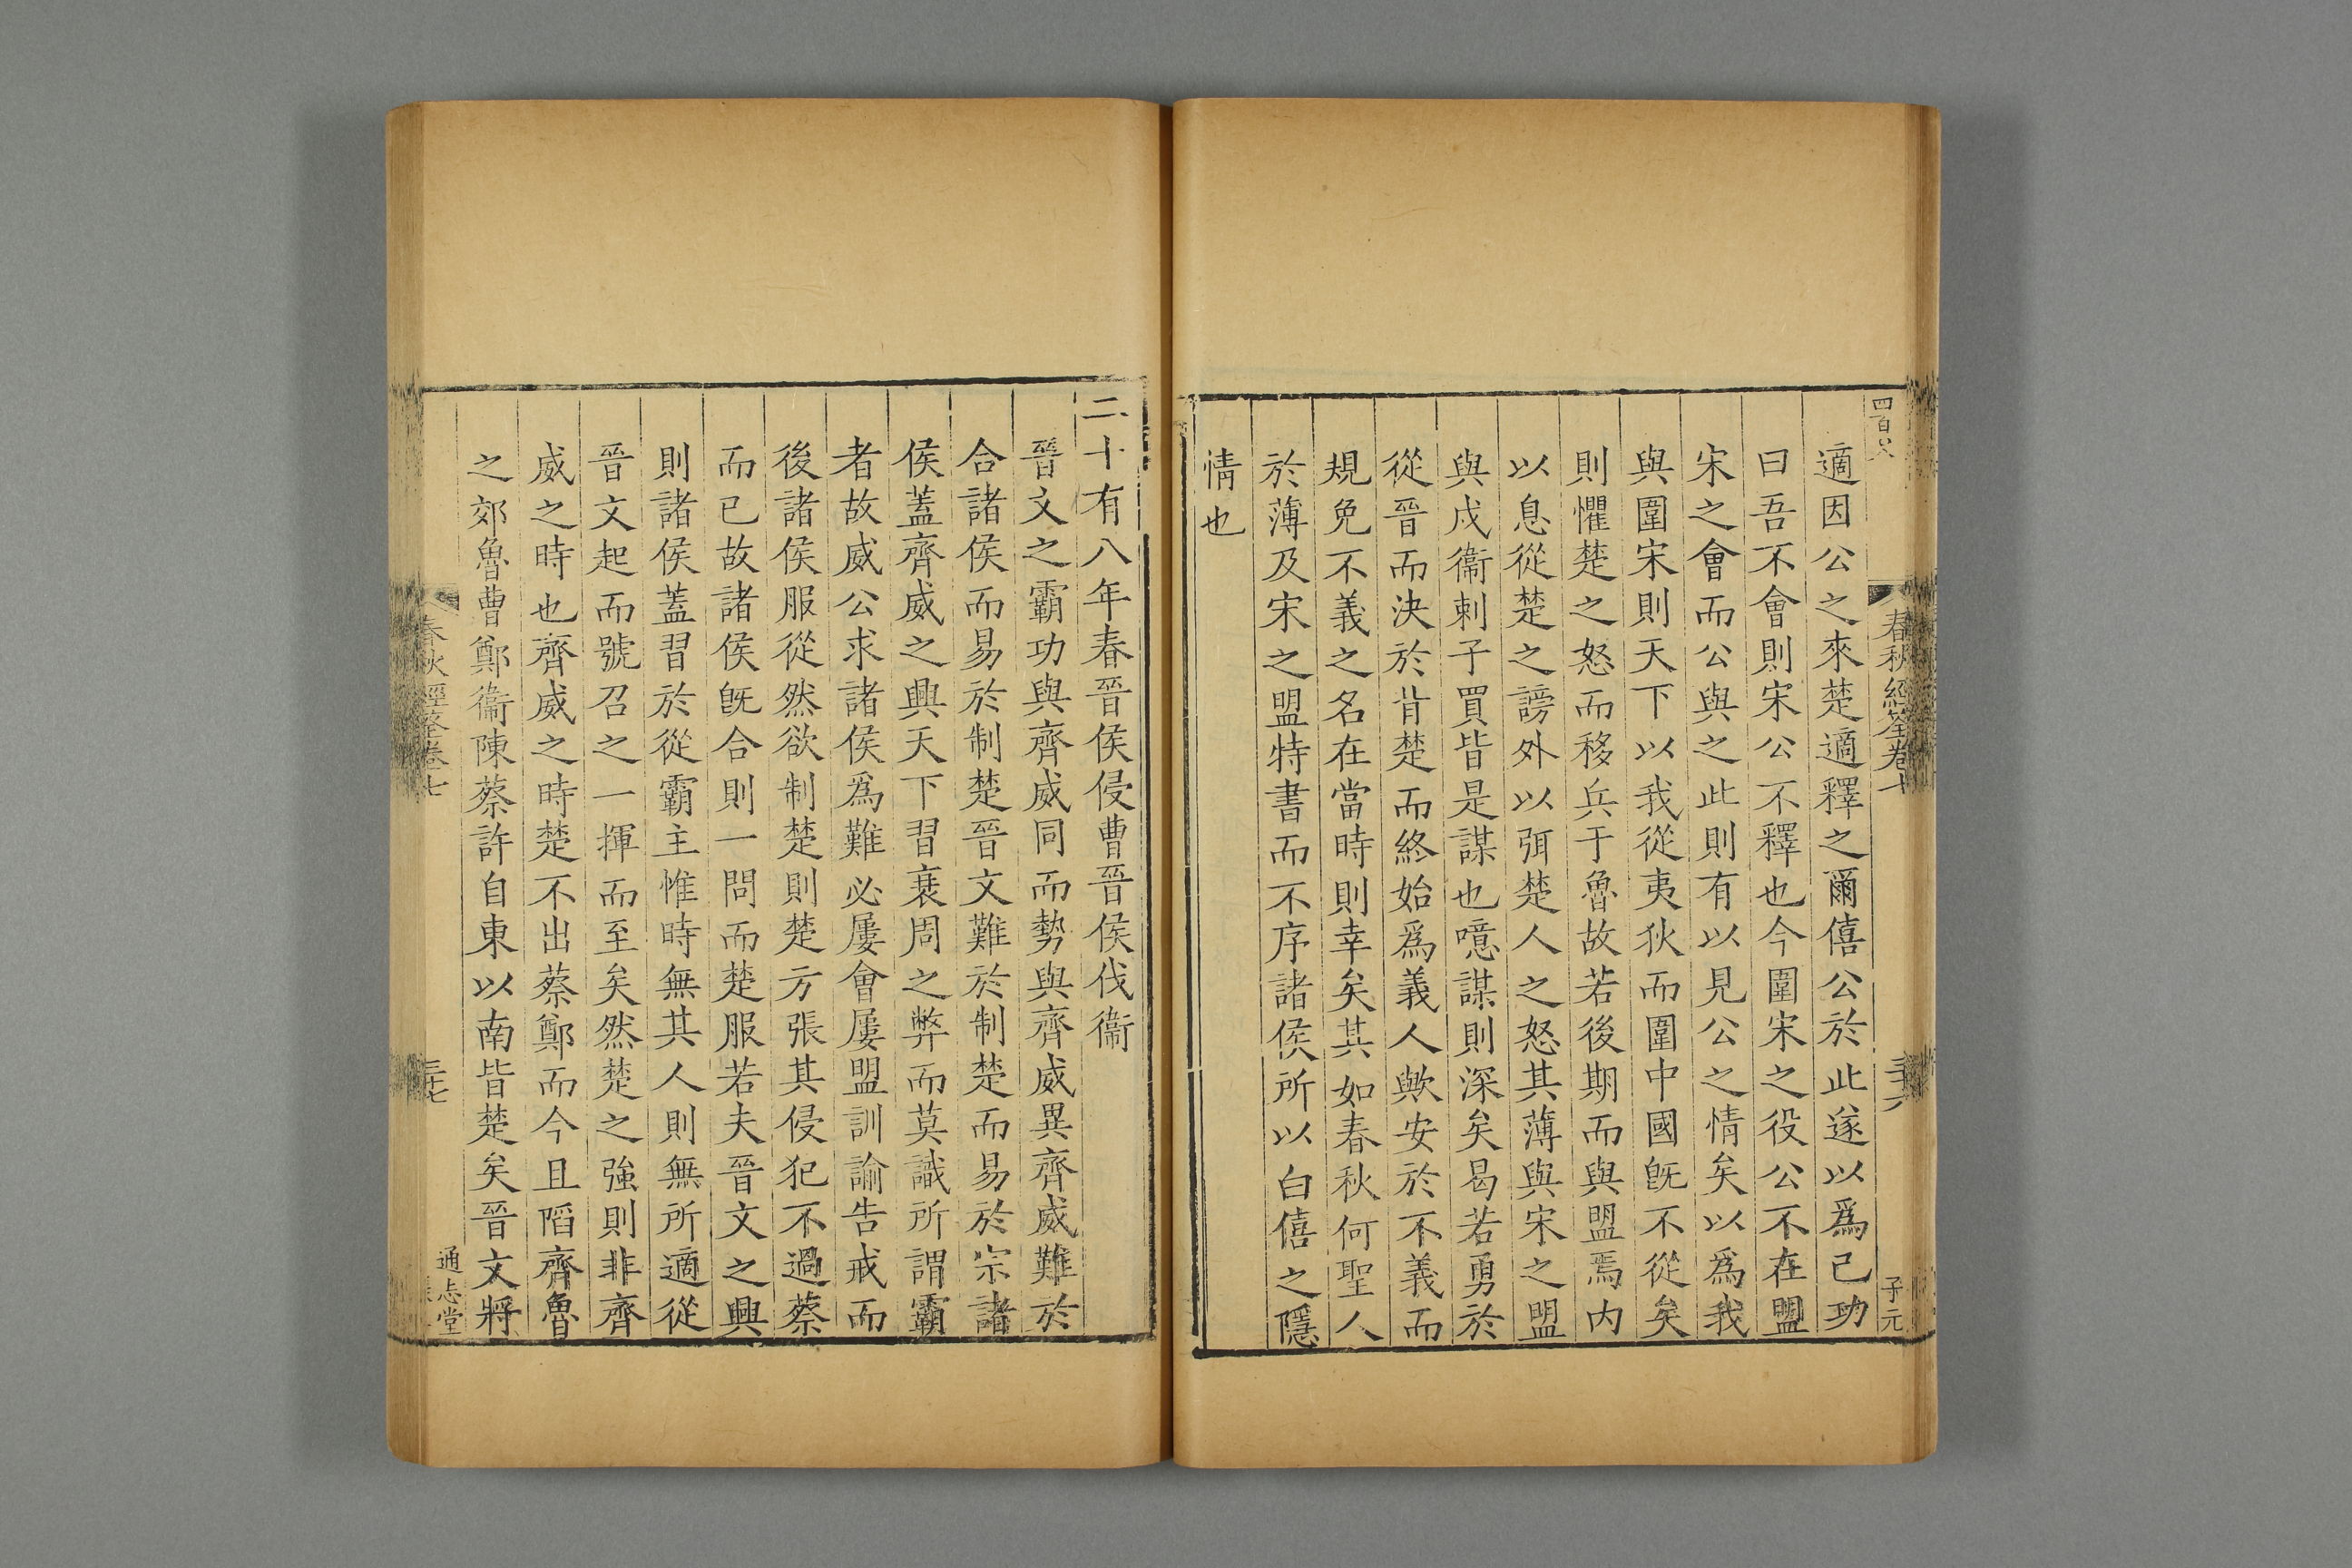 四百六
春秋經筌卷七
三十六
子元
適因公之來楚適釋之爾僖公於此遂以爲己功
曰吾不會則宋公不釋也今圍宋之役公不在盟
宋之會而公與之此則有以見公之情矣以爲我
與圍宋則天下以我從夷狄而圍中國旣不從矣
則懼楚之怒而移兵于魯故若後期而與盟焉内
以息從楚之謗外以弭楚人之怒其薄與宋之盟
與戍衞刺子買皆是謀也噫謀則深矣曷若勇於
從晉而決於背楚而終始爲義人歟安於不義而
規免不義之名在當時則幸矣其如春秋何聖人
於薄及宋之盟特書而不序諸侯所以白僖之隱
情也
二十有八年春晉侯侵曹晉侯伐衞
晉文之霸功與齊威同而勢與齊威異齊威難於
合諸侯而易於制楚晉文難於制楚而易於宗諸
侯蓋齊威之興天下習衰周之弊而莫識所謂霸
者故威公求諸侯爲難必屢會屢盟訓諭告戒而
後諸侯服從然欲制楚則楚方張其侵犯不過蔡
而已故諸侯旣合則一問而楚服若夫晉文之興
則諸侯蓋習於從霸主惟時無其人則無所適從
晉文起而號召之一揮而至矣然楚之強則非齊
威之時也齊威之時楚不出蔡鄭而今且䧟齊魯
之郊魯曹鄭衞陳蔡許自東以南皆楚矣晉文將
春秋經筌卷七
三十七
通志堂